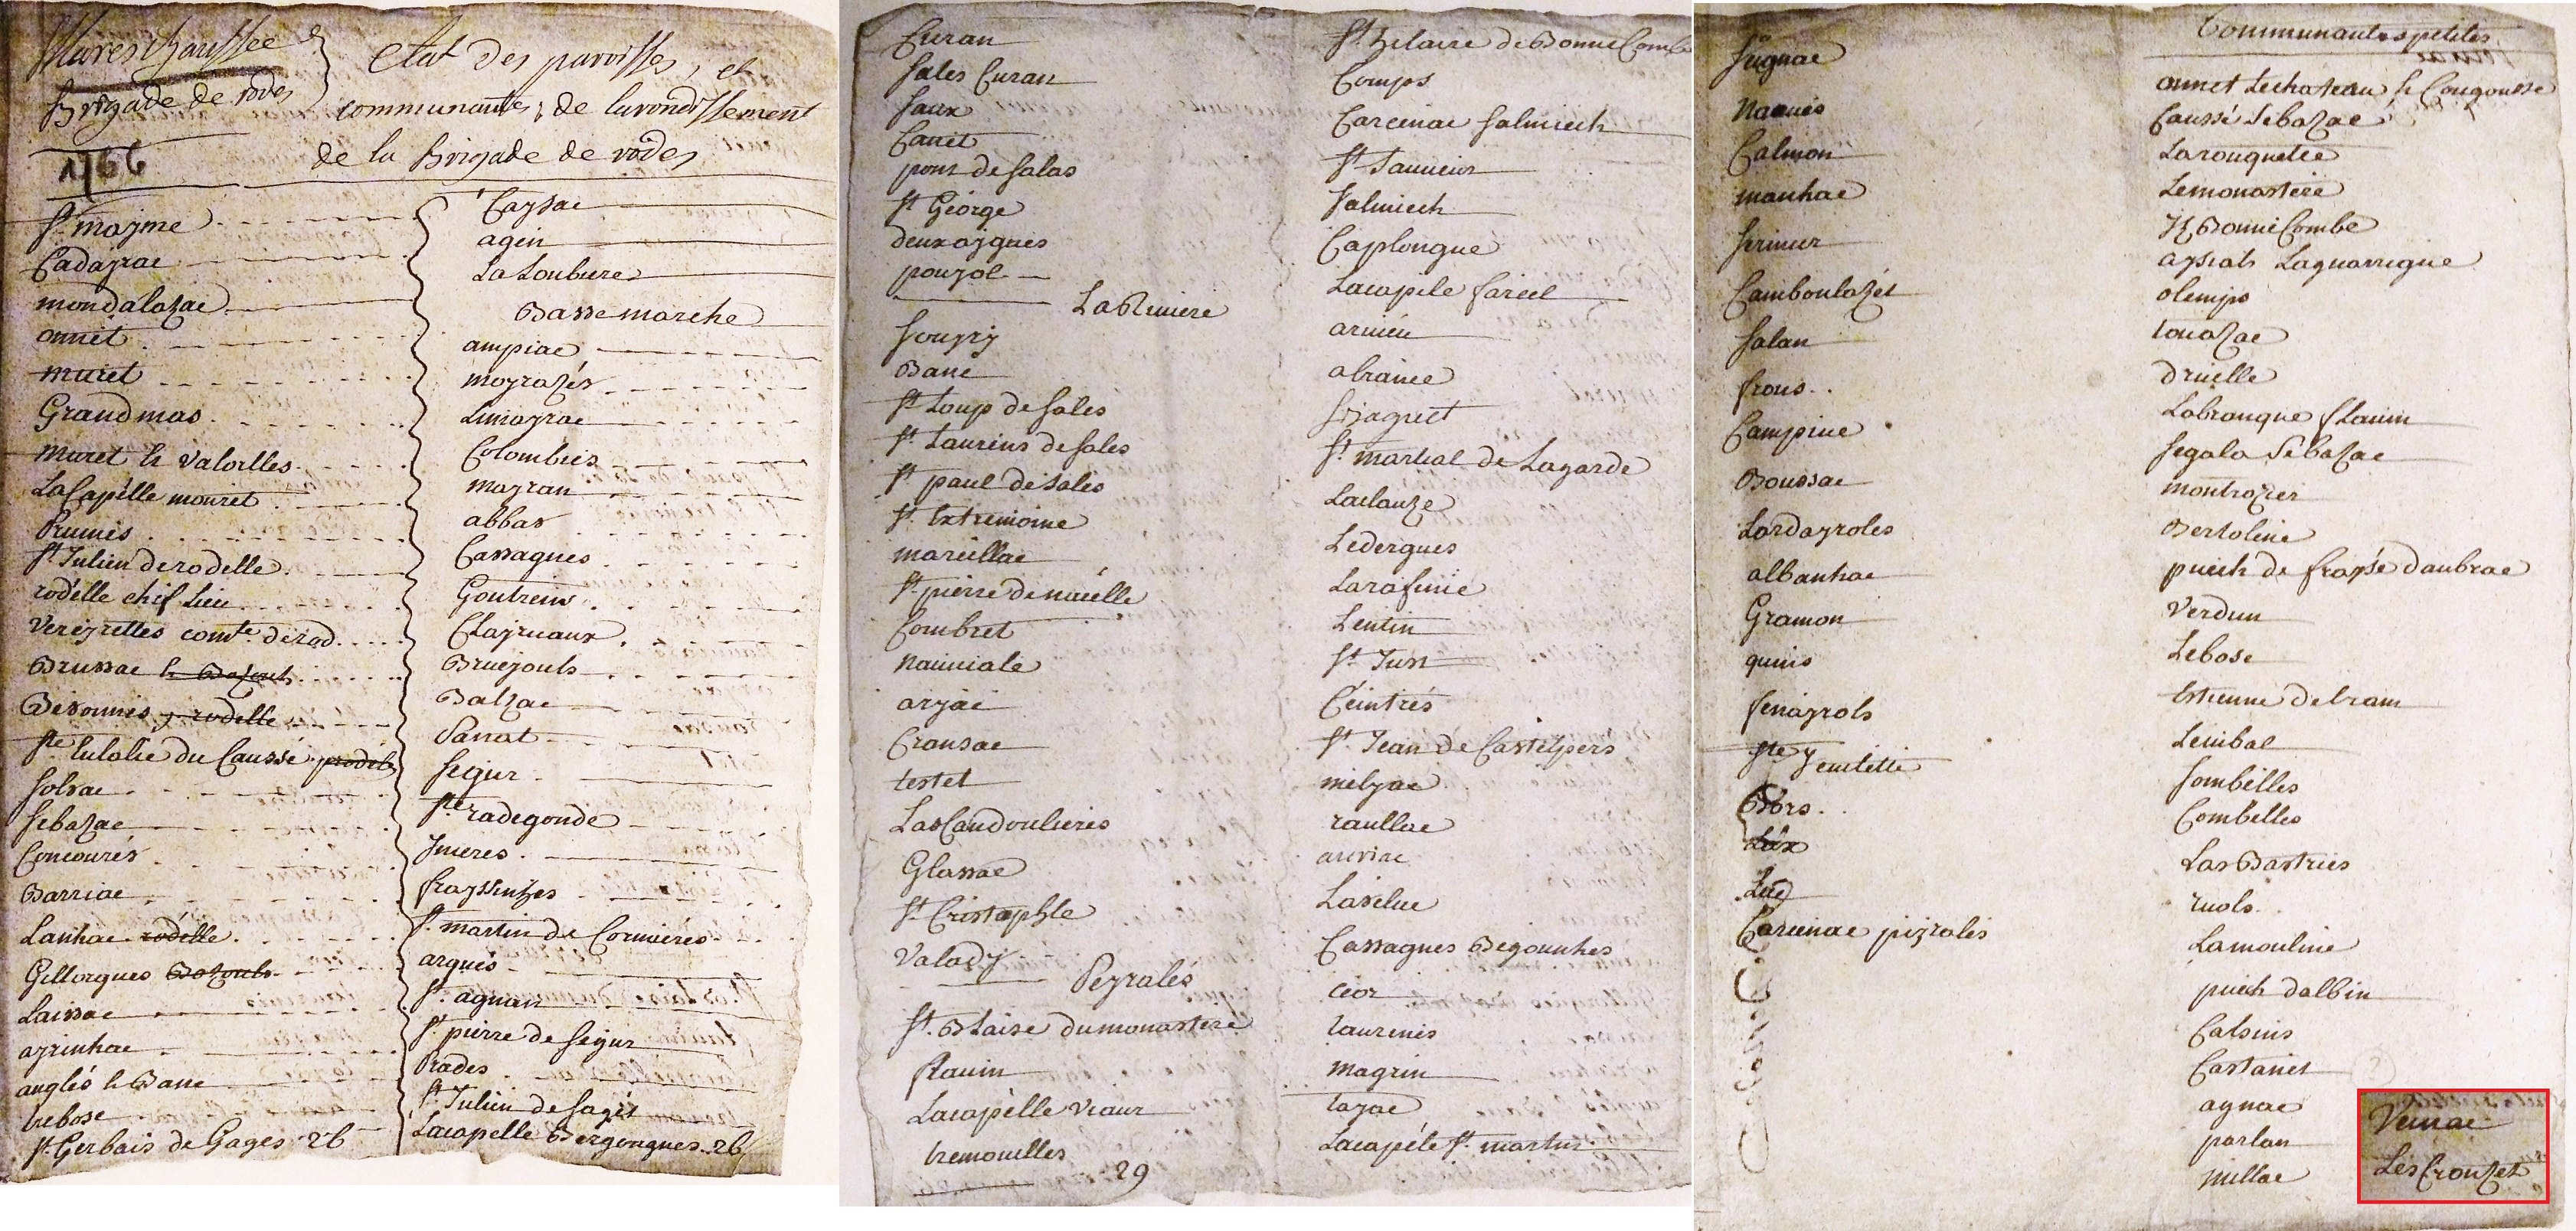 Mareschaussée
Brigade de rodes
1766
Etat des paroisses, et
communautes de larondissement
de la Brigade de rodes
St mayme
Cadayrac
mondalazac
onnet
muret
Grandmas
muret le valadles
LaCapelle mouret
Prunies
St Julien de rodelle
rodelle chef lieu
Vereyrettes comte. de rod
Brussac
Bezonnes rodelle
Ste Eulalie du Causse
Solsac
Sebazac
Concoures
Barriac
Lanhac rodelle
Gillorgues Bozouls
Laissac
ayrinhac
anglés le Bane
trebosc
St Gerbais de Gages 26
Caysac
agen
La Loubiere
Basse marche
ampiac
moyrazés
Limayrac
Colombies
mayran
abbas
Cassagnes
Goutrens
Clayruaux
Bruejouls
Balzac
Panat
Segur
Ste radegonde
Inieres
frayssinhes
St martin de Cormieres
arques
St agnan
St pierre de Segur
Prades
St Julien de fages
Lacapelle Bergougnes 26
Curan
Sales Curan
Saux
Canet
pont de Salas
St George
deux aygues
pouzol
La Riviere
Souyry
Banc
St Loup de Sales
St Laurens de Sales
St paul de Sales
St Extremoine
marcillac
St pierre de nacelle
Combret
nauviale
arjac
Cransac
testet
Las Caudoulieres
Glassac
St Cristophle
Valady
Peyralés
St Blaise du monastere
flauin
Lacapelle Viaur
tremouilles
29
St hilaire de Bonne Combe
Comps
Carcenac Salmiech
St Sauveur
Salmiech
Caplongue
Lacapele farcel
arvieu
abrance
Briaguet
St martial de Lagarde
Laclauze
Ledergues
Larafinie
Lentin
St Just
Ceintrés
St Jean de Castelpers
meljac
raullac
auriac
Laselue
Cassagnes Begounhes
ceor
taurines
magrin
tayac
Lacapéle St martin
Signac
Naues
Calmon
manhac
Serieux
Camboulazét
Salan
frons
Campriue
Boussac
Lardayroles
albanhac
Gramon
quins
Senayrols
Bors
Lax
Luc
Carcenac peyrales
Communautes petites
onnet Lechateau le Cougousse
Caussé Sebazac
Larouquette
Lemonastere
Bonne Combe
ayssals Laguarrigue
olemps
touozac
druelle
Labrouque flauin
Segala Sebazac
montrozier
Bertolene
puech de frayse daubrac
Verdun
Lebosc
Estienne delram
Lenibal
Sombilles
Combelles
Las Bastries
ruols
Lamouline
puech dalbin
Calsins
Castanet
aynac
parlan
millac
Veirac
Les Crouzet